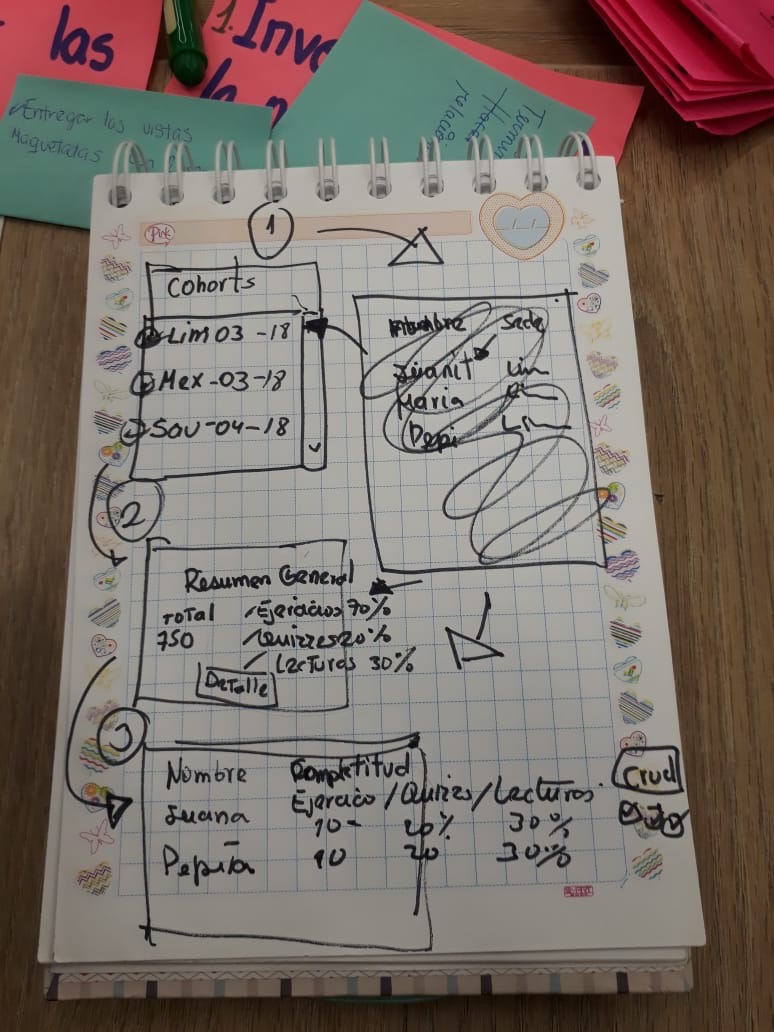 las
1. Inv
Entregar las vistas
Maquetadas
Pink
1
Cohorts
Lim 03 -18
Mex -03 -18
Sau -04 -18
Nombre Sede
Juanit Lim
Maria
Pepi
2
Resumen General
Total /Ejercicios 70%
750 /Quizzes 20%
/ Lecturas 30%
Detalle
3
Nombre Completitud
Ejercicio / Quizes / Lecturas.
Juana 10 - 20% 30%
Pepita 10 20 30%
Crud